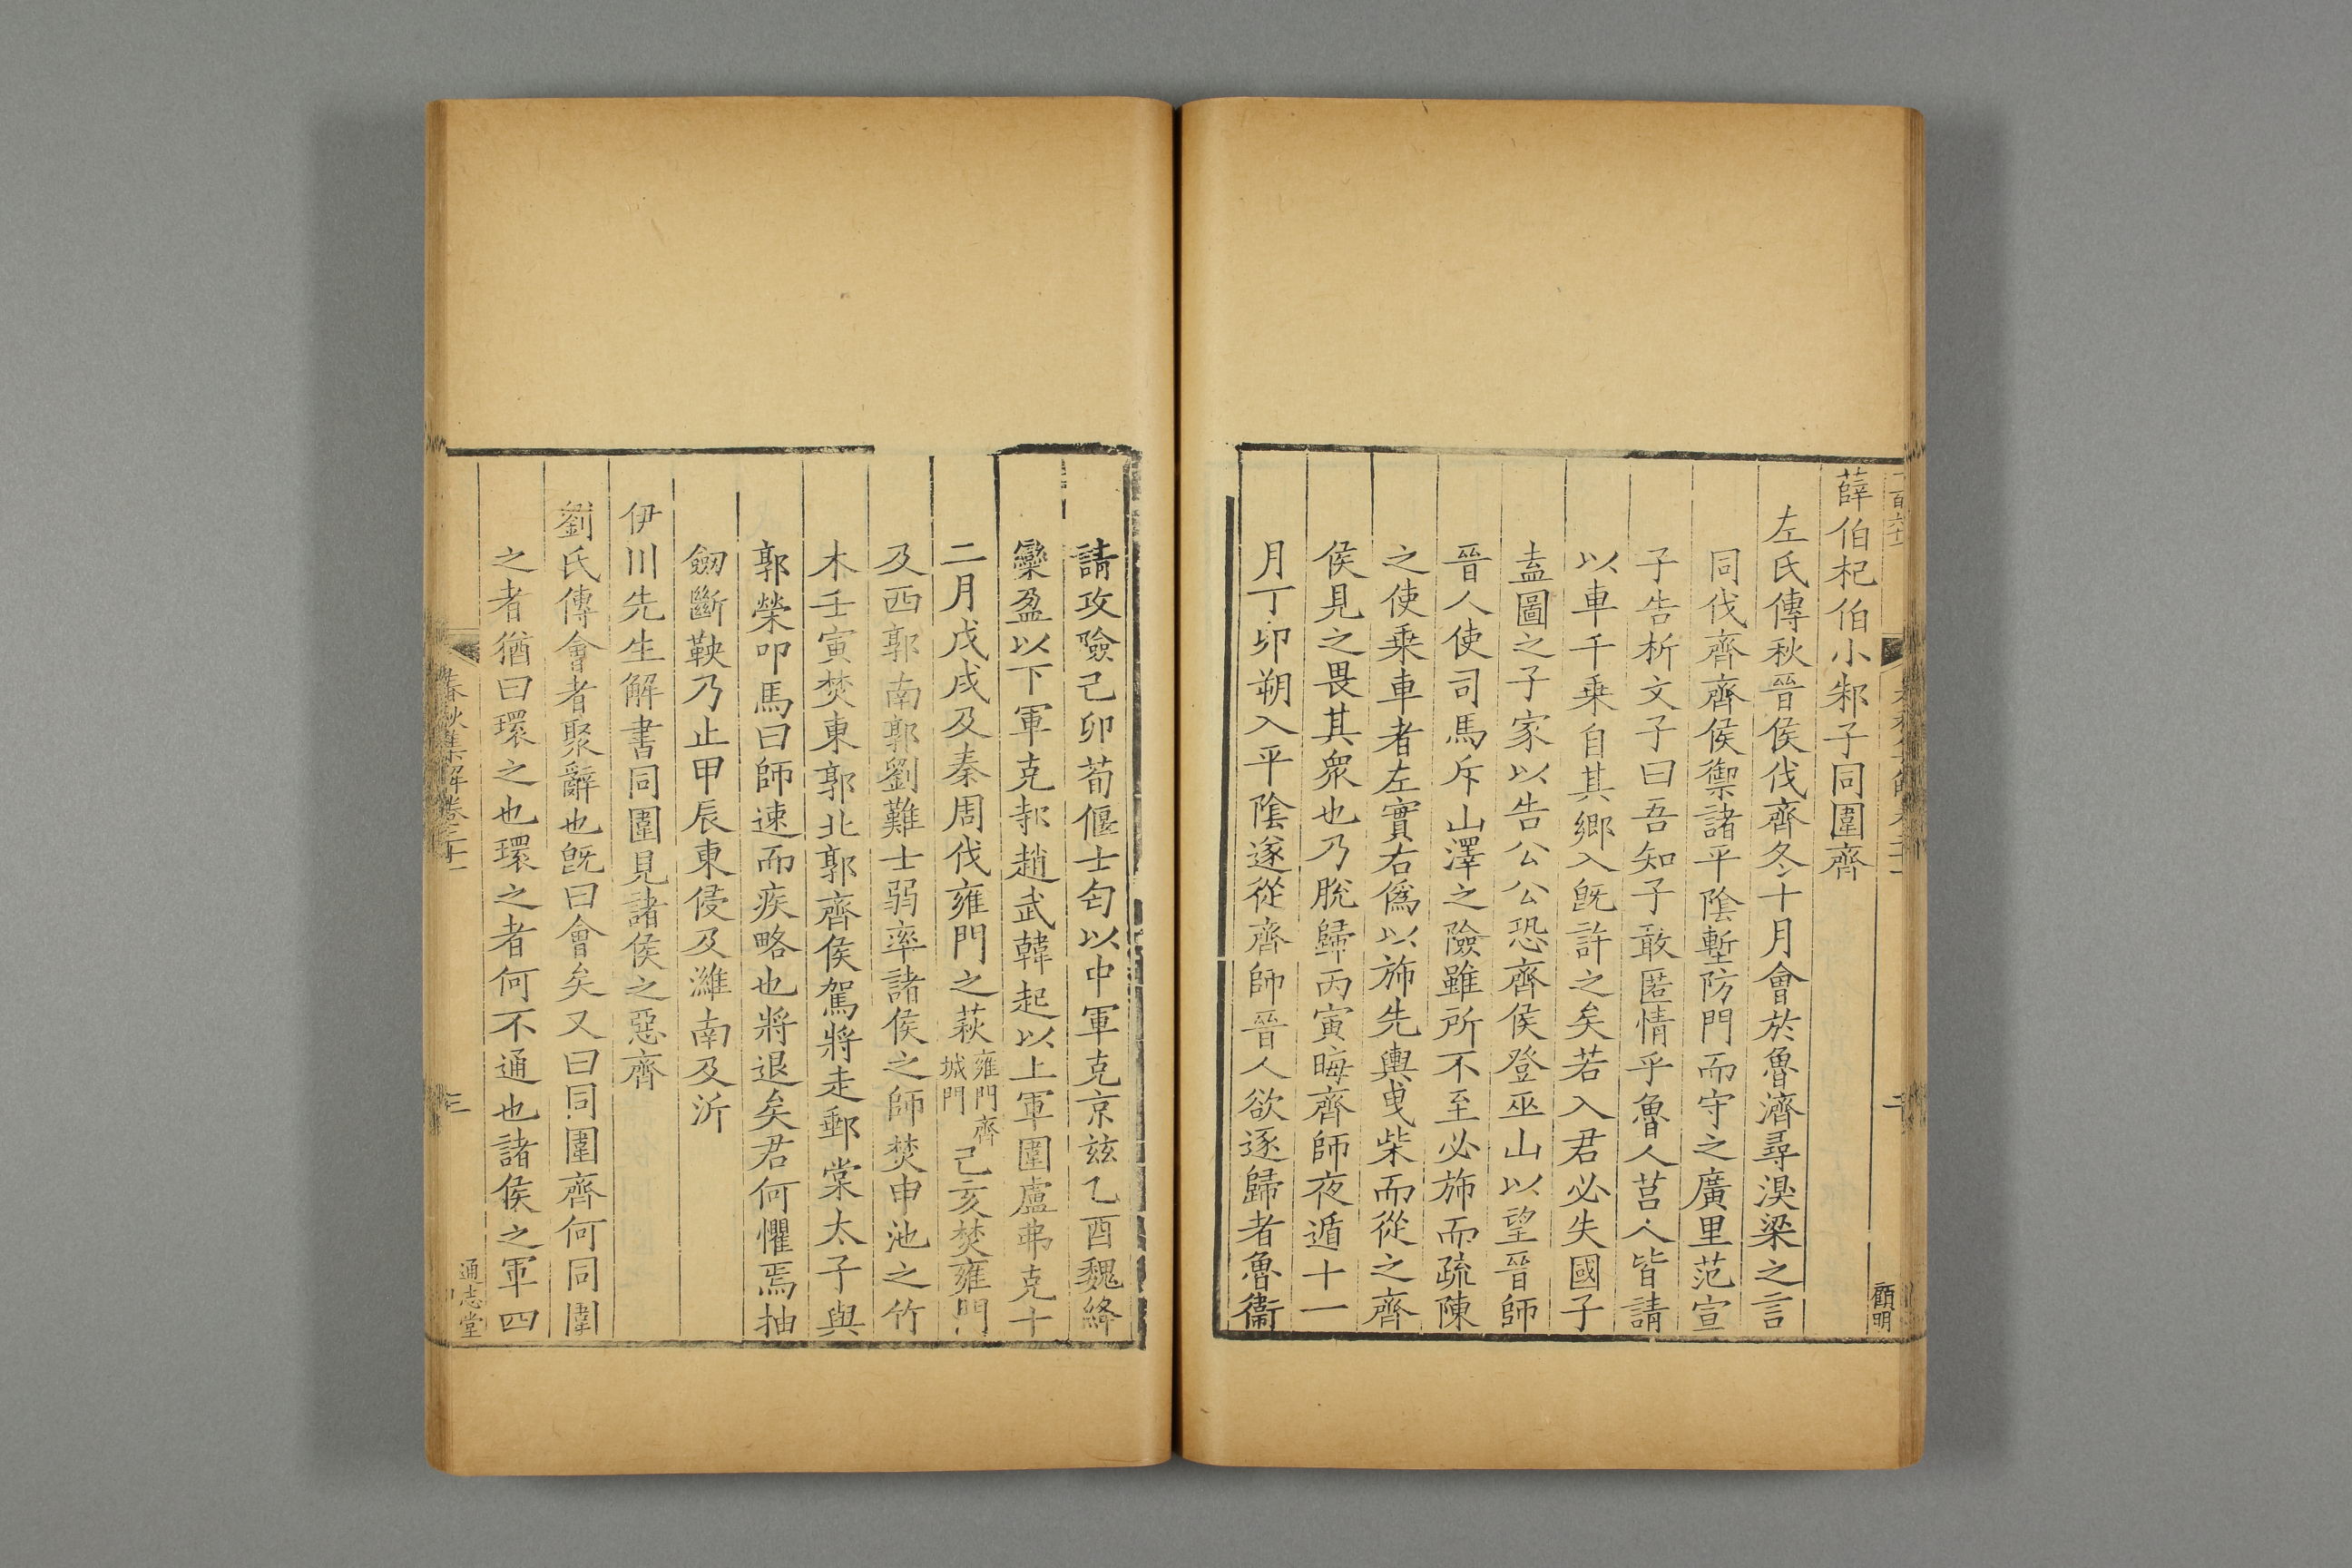 薛伯杞伯小邾子同圍齊
左氏傳秋晉侯伐齊冬十月會於魯濟尋溴梁之言
同伐齊齊侯禦諸平陰塹防門而守之廣里范宣
子告析文子曰吾知子敢匿情乎魯人莒人皆請
以車千乗自其郷入旣許之矣若入君必失國子
盍圖之子家以告公公恐齊侯登巫山以望晉師
晉人使司馬斥山澤之險雖所不至必斾而疏陳
之使乗車者左實右僞以斾先輿曵柴而從之齊
侯見之畏其衆也乃脫歸丙寅晦齊師夜遁十一
月丁卯朔入平隂遂從齊師晉人欲逐歸者魯衞
顧明
請攻險己卯荀偃士匄以中軍克京玆乙酉魏絳
欒盈以下軍克邿趙武韓起以上軍圍盧弗克十
二月戊戌及秦周伐雍門之萩雍門齊城門己亥焚雍門
及西郭南郭劉難士弱率諸侯之師焚申池之竹
木壬寅焚東郭北郭齊侯駕將走郵棠太子與
郭榮叩馬曰師速而疾略也將退矣君何懼焉抽
劒斷鞅乃止甲辰東侵及濰南及沂
伊川先生解書同圍見諸侯之惡齊
劉氏傳會者聚辭也旣曰會矣又曰同圍齊何同圍
之者猶曰環之也環之者何不通也諸侯之軍四
春秋集解卷二十一
三
通志堂